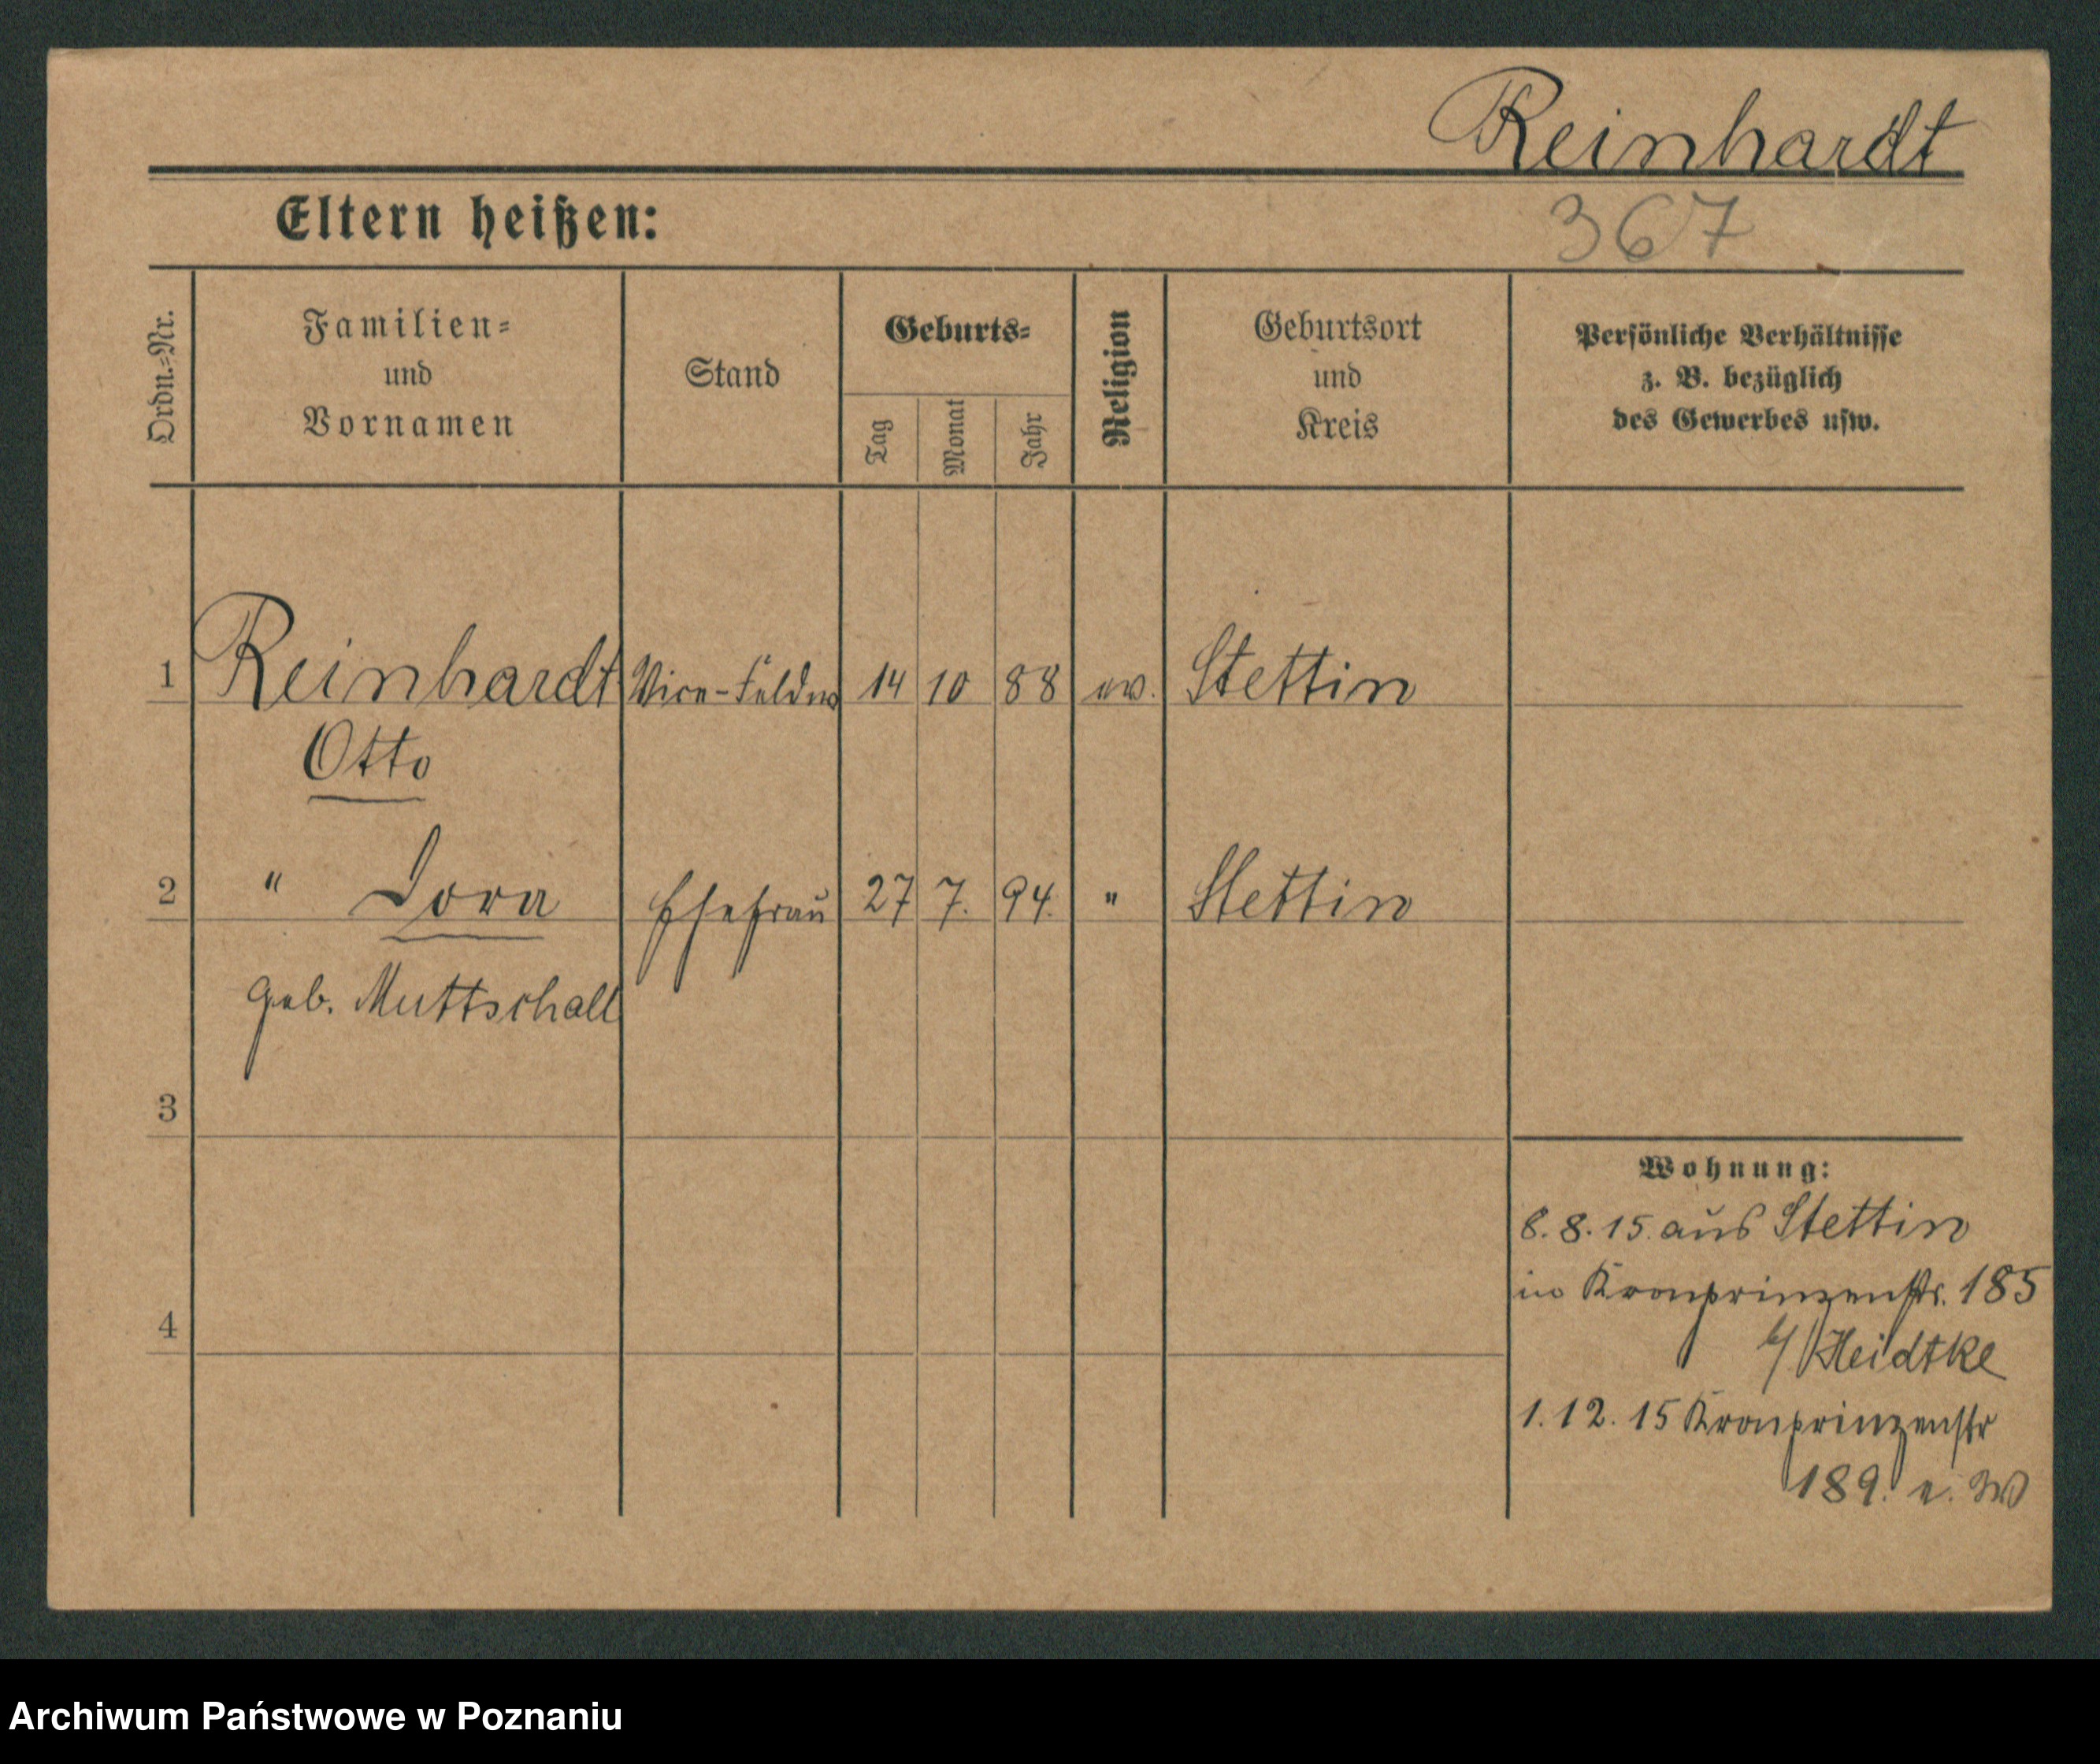 Reinhardt
Eltern heißen:
367
Ordn.-Nr.
Familien-
und
Vornamen
Stand
Geburts-
Tag
Monat
Jahr
Religion
Geburtsort
und
Kreis
Persönliche Verhältnisse
z. B. bezüglich
des Gewerbes usw.
1 Reinhardt Vice-Feldw 14 10 88 ev. Stettin
Otto
2 " Ehefrau 27 7. 94. " Stettin
geb. Muttschall
3
Wohnung:
8. 8. 15. aus Stettin
in Kronprinzenstr. 185
4
b/ Heidtke
1. 12. 15 Kronprinzenstr
189. e. W
Archiwum Państwowe w Poznaniu